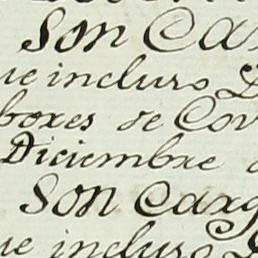 Son Ca
ue incluso D
bores de Cov
Diciembre
Son Carg
ue incluso D